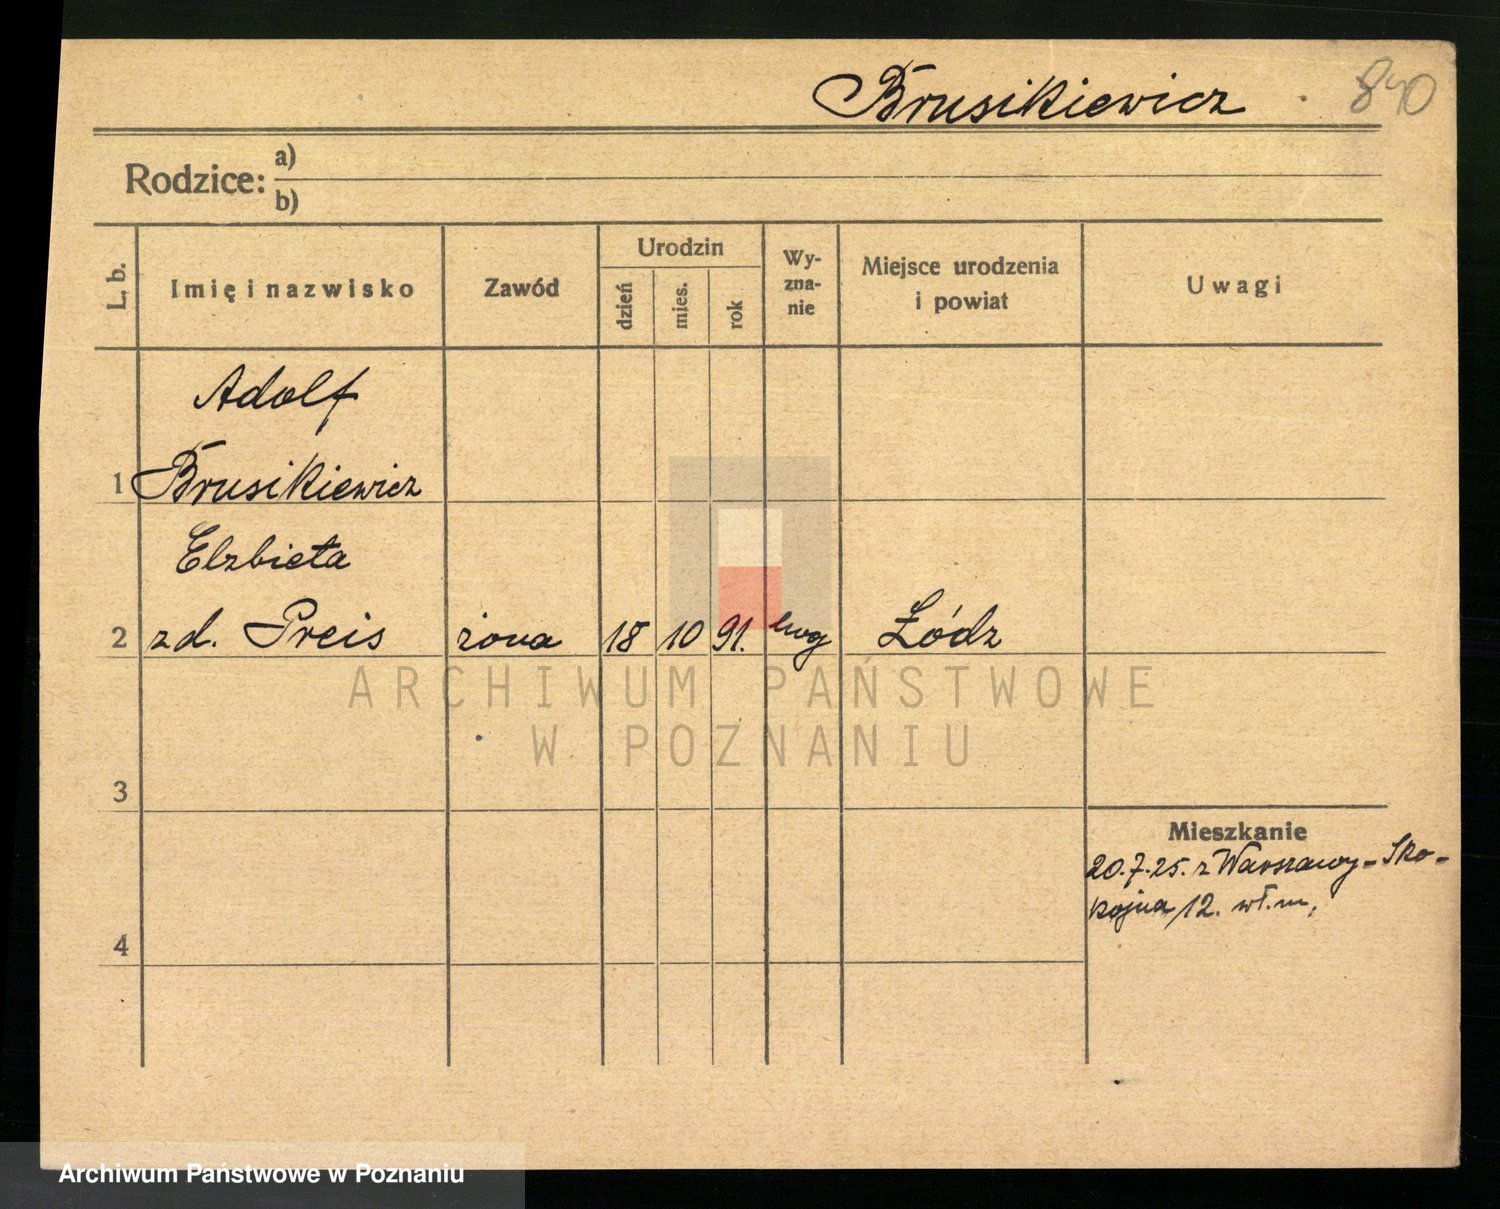 Brusikiewicz 840
Rodzice: a)
b)
L. b.
Imię i nazwisko
Zawód
Urodzin
dzień
mies.
rok
Wy-
zna-
nie
Miejsce urodzenia
i powiat
Uwagi
Adolf
1 Brusikiewicz
Elzbieta
2 zd. Preis żona 18 10 91. Łódz
ARCHIWUM PAŃSTWOWE
W POZNANIU
3
Mieszkanie
20.7.25. z Warszawy - Sko-
kojna 12. wł.m,
4
Archiwum Państwowe w Poznaniu